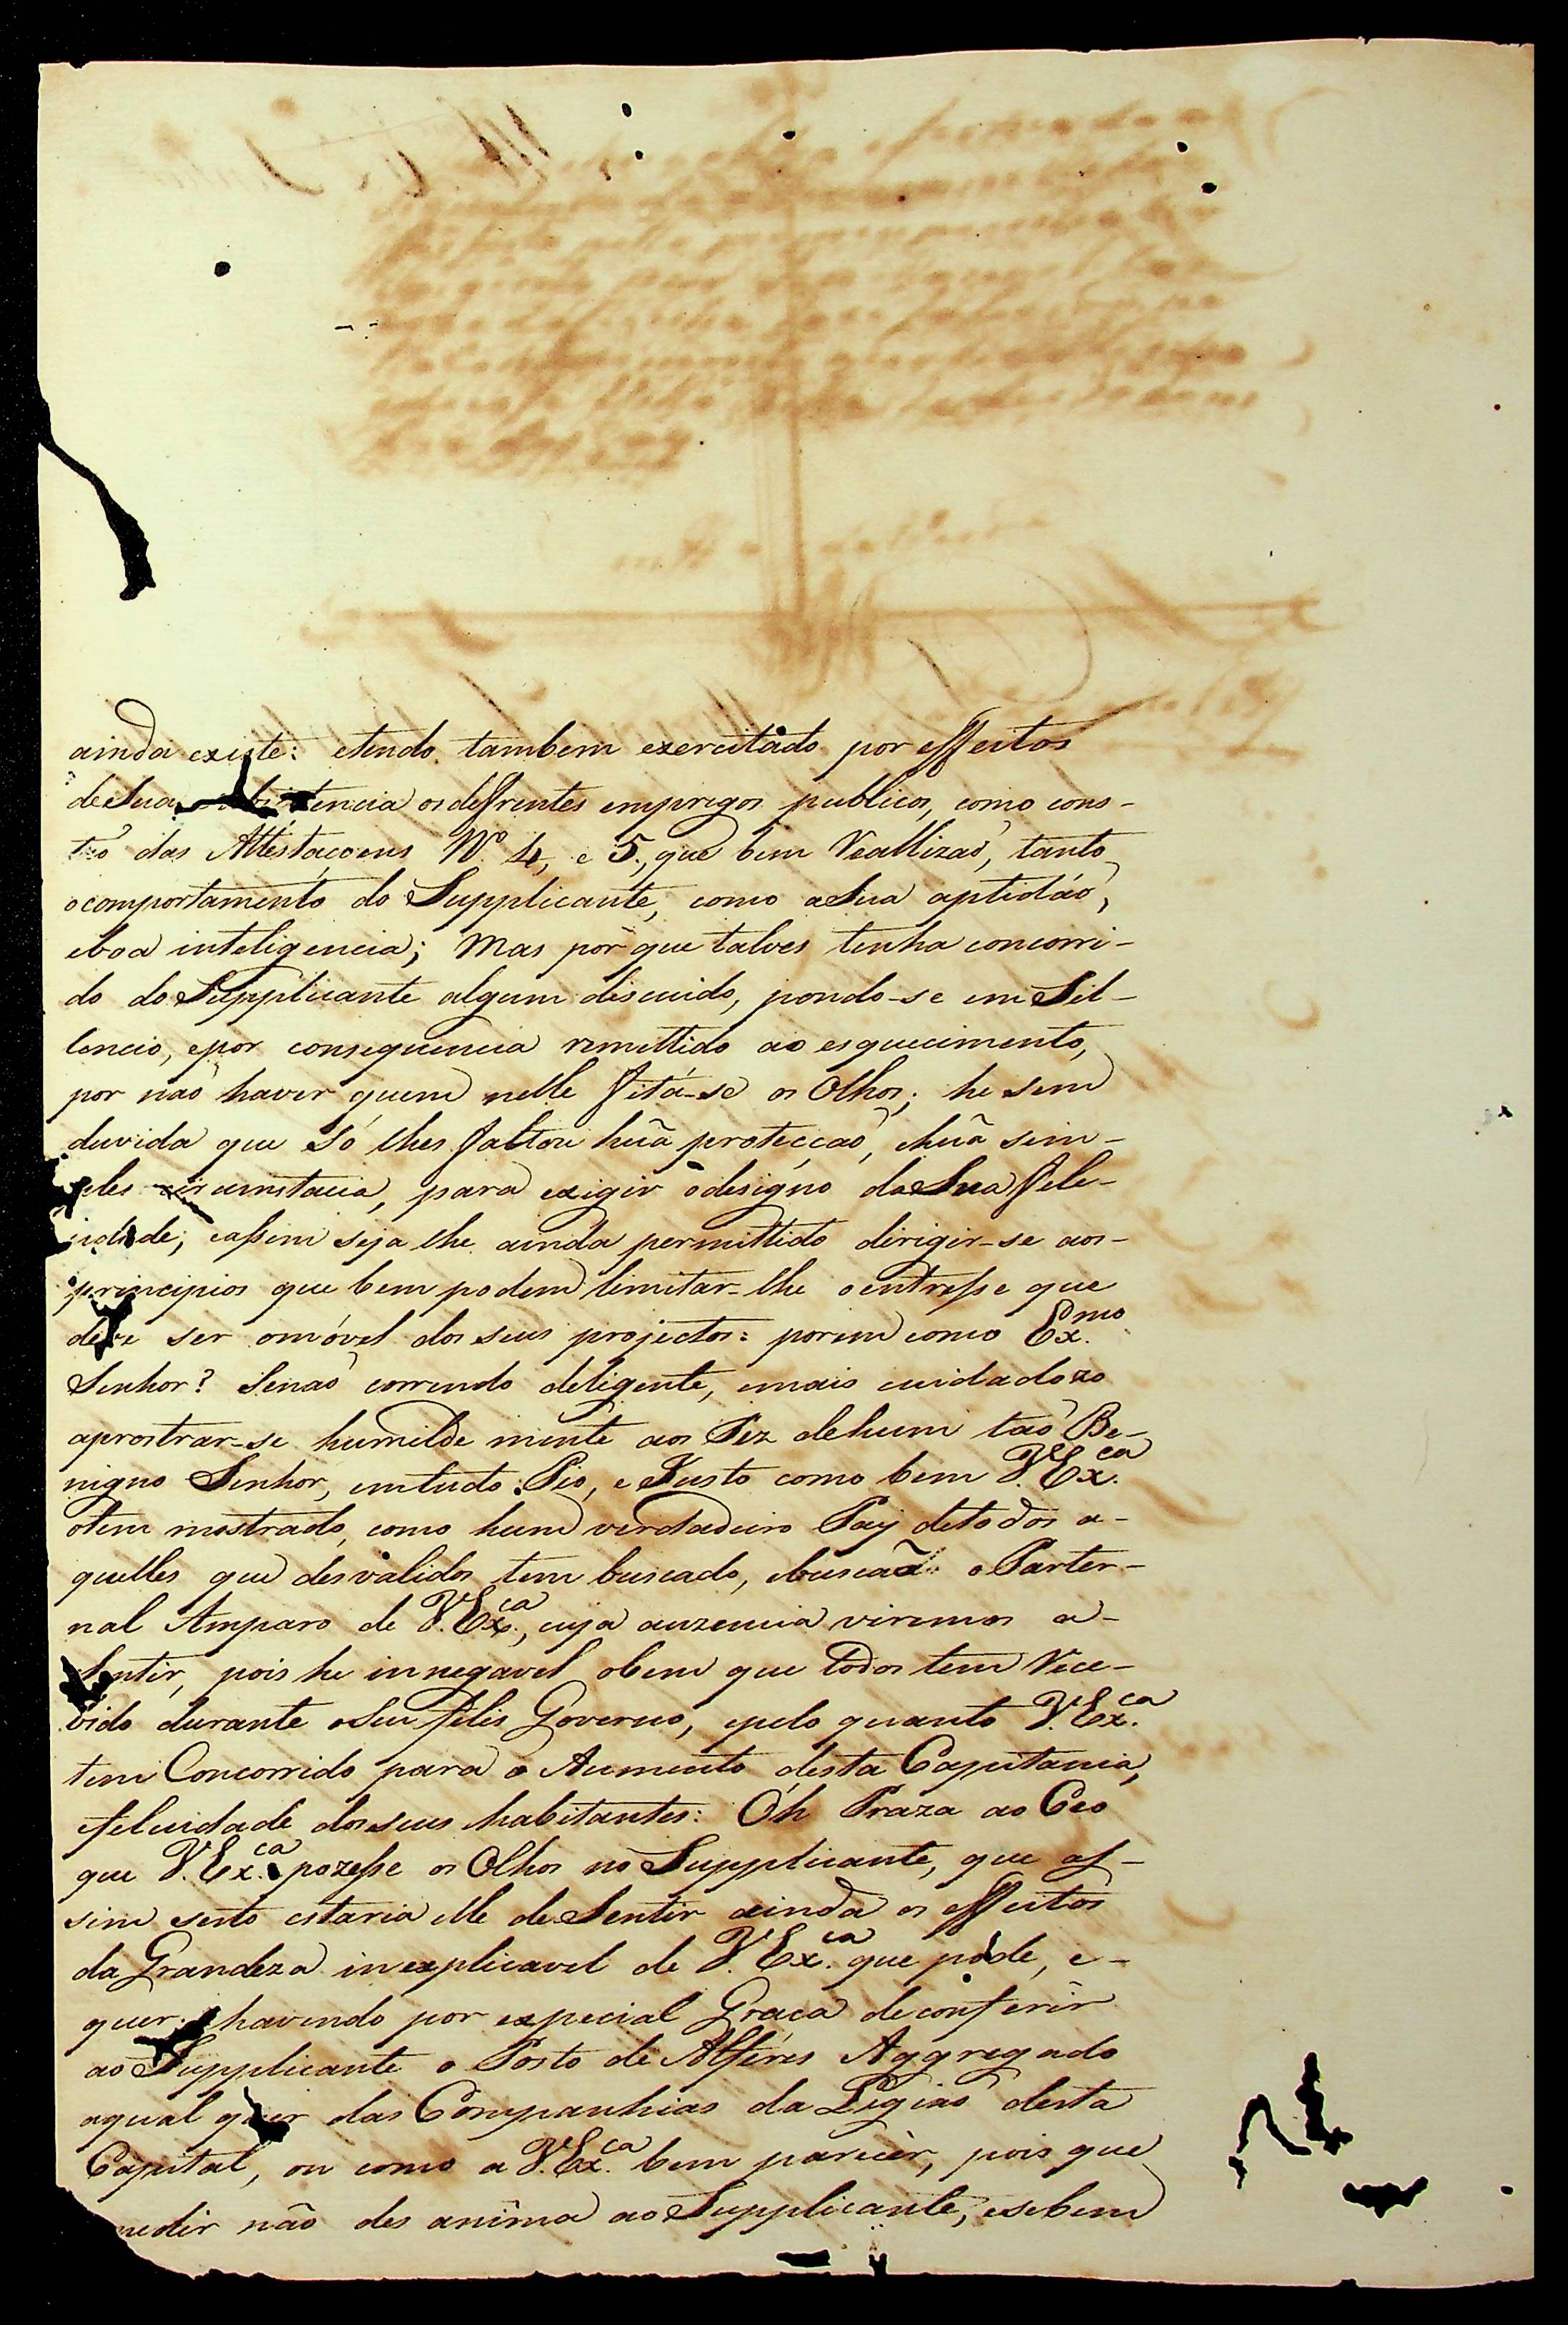 ainda existe: etendo tambem exercitado por effeitos
desua ostencia os defrentes empregos publicos, como cons-
tão das Attestaçoens N.º 4, e 5, que bem Reallizaõ, tanto
ocomportamento do Supplicante, como aSua aptidaõ,
eboa inteligencia; Mas por que talves tenha concorri-
do do Supplicante algum discuido, pondo-se em Sil-
lencio, epor consequencia remettido ao esquecimento,
por naõ haver quem nelle fitá-se os Olhos; he sem
duvida que só lhes faltou huã protecçaõ, ehuã sim-
ples circunstacia, para exigir odesigno daSua fele-
cidade; eassim seja lhe ainda permittido dirigir-se aos-
principios que bem podem limitar-lhe oentresse que
deve ser omóvel dos seus projectos: porem como Ex.mo
Senhor? Senaõ correndo deligente, emais cuidadozo
aprostrar-se humilde mente aos Pez dehum taõ Be-
nigno Senhor, emtudo Pio, e Justo como bem V.Ex.ca
otem mostrado, como hum verdadeiro Pay detodos a-
quelles que desvalidos tem buscado, ebuscaõ o Parter-
nal Amparo de V.Ex.ca, cuja auzencia viremos a-
Sentir, pois he innegavel obem que todos tem Rece-
bido durante oSeu felis Governo, epelo quanto V.Ex.ca
tem Concorrido para o Aumento desta Capitania,
efelicidade dos seus habitantes: Óh Praza ao Ceo
que V.Ex.ca pozesse os Olhos no Supplicante, que as-
sim serto estaria elle de Sentir ainda os effeitos
da Grandeza inexplicavel de V.Ex.ca que pode, e-
quer havendo por especial Graca deconferir
ao Supplicante o Posto de Alferes Aggregado
aqual quer das Companhias da Ligiaõ desta
Capital, ou como a V.Ex.ca bem parecèr, pois que
medir não des anima ao Supplicante, esebem